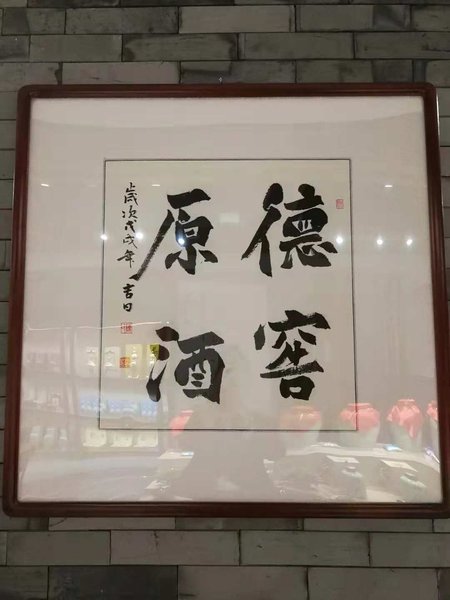 德窖
原酒
歲次戊戌年 吉日